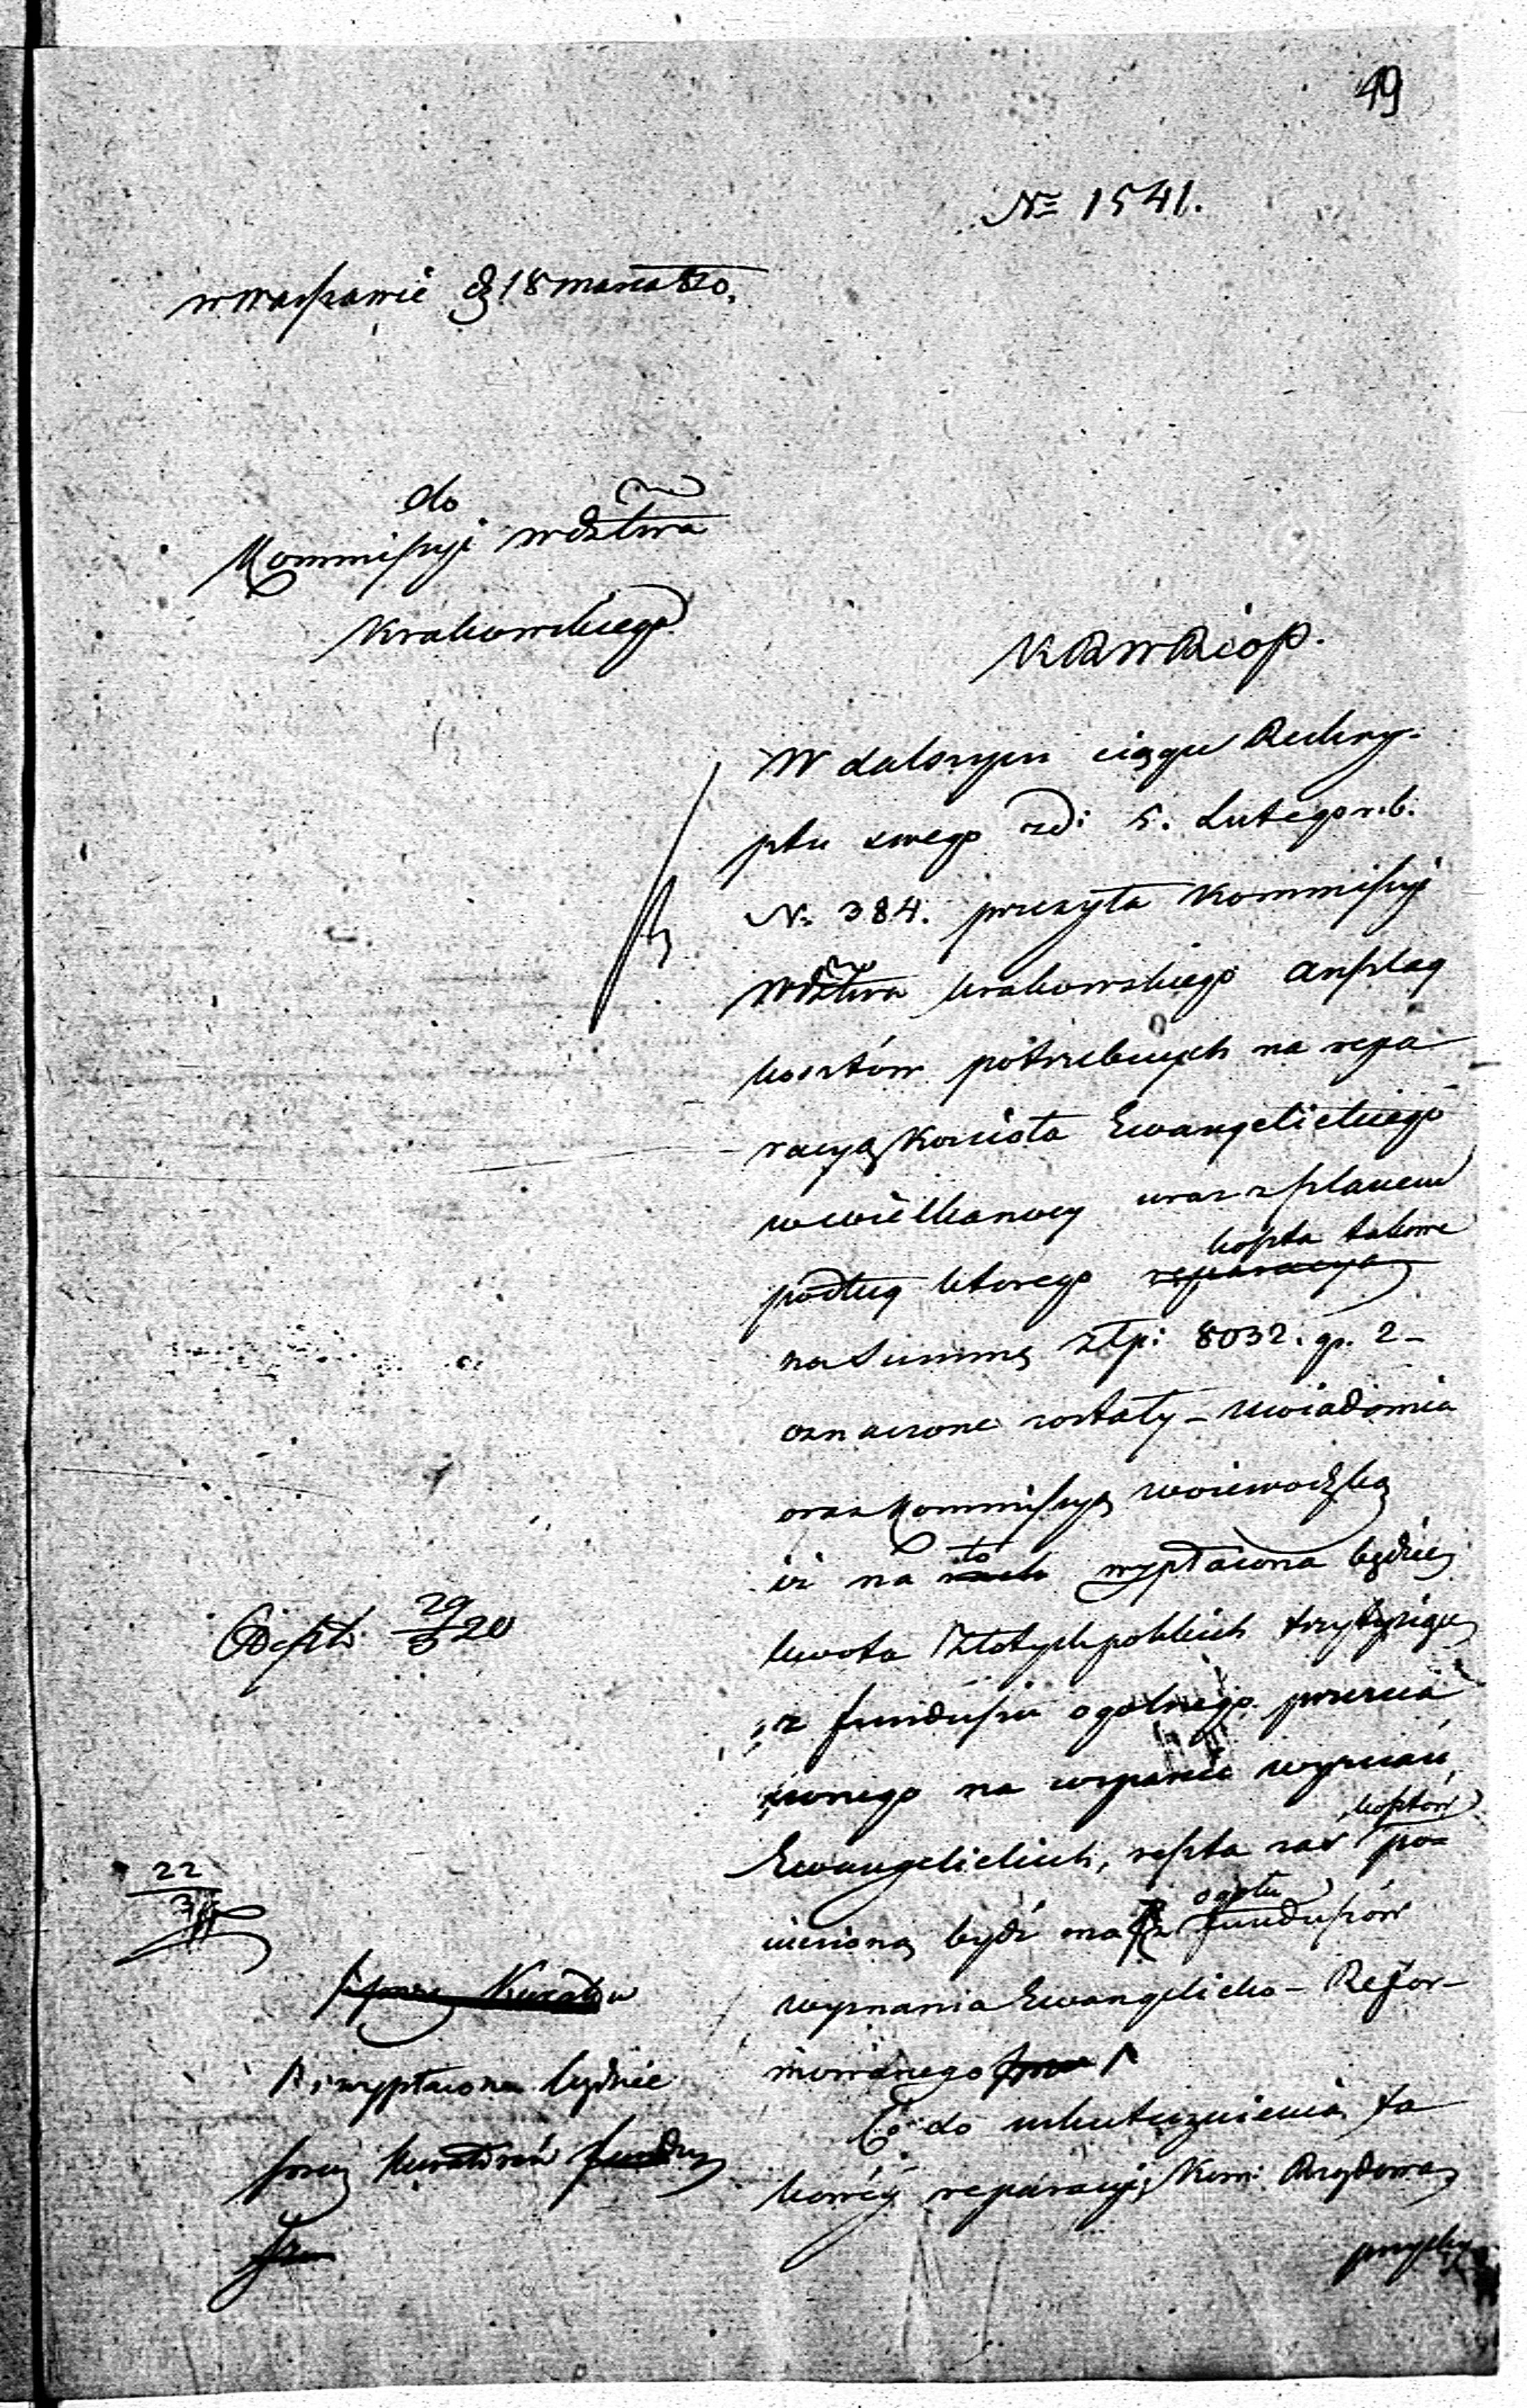 49
№ 1541.
w Warszawie d. 18 marca 820.
do
Kommissyi Wdztwa
Krakowskiego
K R W R i O P.
W dalszym ciągu Reskry-
ptu swego z d: 5. Lutego r. b.
N. 384. przesyła Kommissyi
Wdztwa Krakowskiego anszlag
kosztów potrzebnych na repa
racyą Kościoła Ewangelickiego
w Wielkanocy wraz z planem
koszta takowe
podług ktorego reparacya
na Summę złp: 8032. gr. 2 –
oznaczone zostały – uwiadomia
oraz Kommissyą woiewodzką
iż na to wypłacona będzie
kwota Złotych polskich trzy tysiące
z funduszu ogolnego przezna
czonego na wsparcie wyznań
Ewangelickich, reszta zaś kosztów po=
ogółu
niesioną bydź ma z funduszów
wyznania Ewangelicko – Refor–
mowanego
Co do uskutecznienia ta
kowéy reparacyi, Kom: Rządowa
przyłą
Odeszło 29/3 20
22/3
przez Kuratorów
i wypłacona będzie
przez Kuratorów fundusz